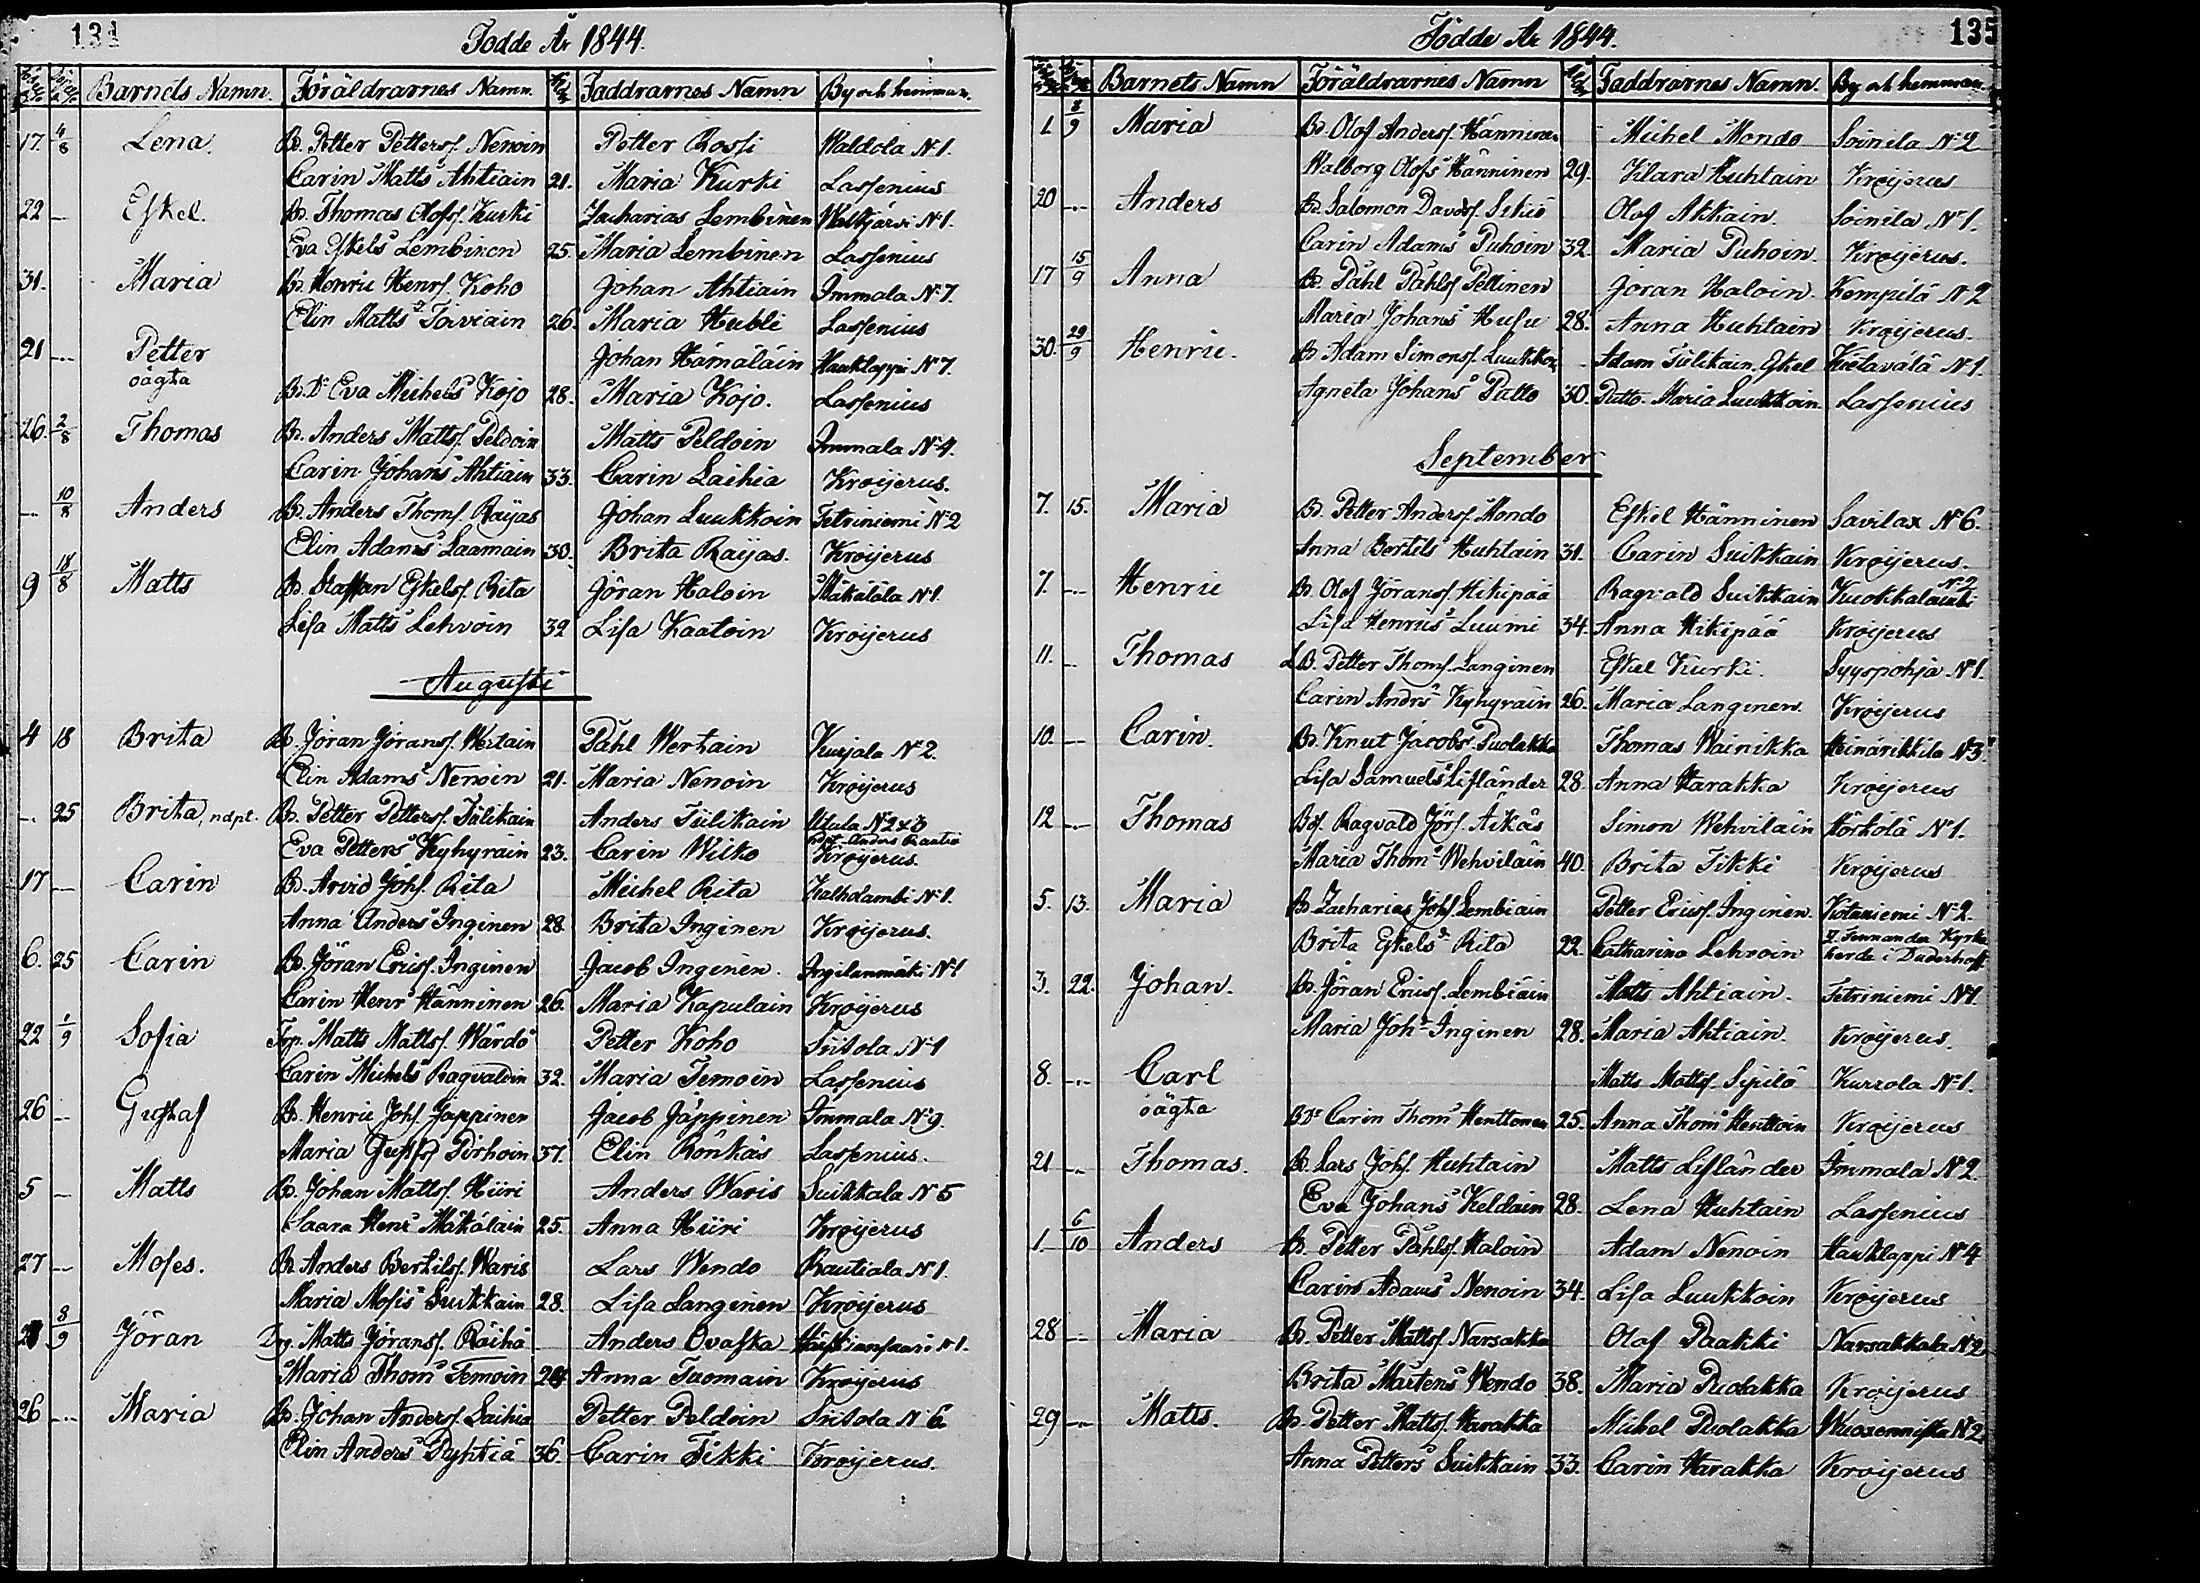 134
Födde År 1844.
Barnets Namn. Föräldrarnes Namn. Faddrarnes Namn By och hemman.
17. 4/8 Lena. Bd. Petter Petterss. Nenoin Petter Rossi Waldola N:1.
Carin Matts Ahtiain 21. Maria Kurki Lassenius
22 — Eskel. Bd. Thomas Olofss. Kurki Zacharias Lembinen Walkjärvi N:1.
Eva Eskels Lembinen 25. Maria Lembinen Lassenius
31. Maria Bd. Henric Henrs. Koho Johan Ahtiain Immala N:7.
Elin Matts Torviain 26. Maria Hubli Lassenius
21 — Petter Johan Hämäläin Hauklappi N:7.
oägta Bd. Dr Eva Michels Kojo 28. Maria Kojo. Lassenius
26. 2/8 Thomas Bd. Anders Mattss. Peldoin Matts Peldoin Immala N:4.
Carin Johans Ahtiain 33. Carin Laihia Kroijerus.
— 10/8 Anders Bd. Anders Thoms. Raijas Johan Luukkoin Tetriniemi N:2
Elin Adams Laamain 30. Brita Raijas. Kroijerus
9 18/8 Matts Bd. Staffan Eskelss. Rita Jöran Haloin Mäkälälä N:1.
Lisa Matts Lehvoin 32 Lisa Kaatoin Kroijerus
Augusti
4 18 Brita Bd. Jöran Jöranss. Wertain Påhl Wertain Kurjala N:2.
Elin Adams Nenoin 21. Maria Nenoin Kroijerus
— 25 Brita, ndpt. Bd. Petter Petterss. Tälikain Anders Tiilikain Utula N:2&3
Eva Petters Kyhyräin 23. Carin Wilko Anders Rautio Kroijerus
17 — Carin Bd. Arvid Johs. Rita Michel Rita Kalholambi N:1.
Anna Anders Inginen 28. Brita Inginen Kroijerus.
6. 25 Carin Bd. Jöran Erics. Inginen Jacob Inginen. Ingilänmäki N:1
Carin Henr Hänninen 26. Maria Kapulain Kroijerus
22 1/9 Sofia Trp. Matts Mattss. Wärdö Petter Koho Siitola N:1
Carin Michels Ragvaldin 32. Maria Temoin Lassenius
26 — Gustaf Bd. Henric Johs. Jäppinen Jacob Jäppinen Immala N:9.
Maria Pirhoin 37. Elin Rönkäs Lassenius.
5 — Matts Bd. Johan Mattss. Hiiri Anders Waris Suikkala N:5
Saara Henr Mäkäläin 25. Anna Hiiri Kroijerus
27 — Moses. Bd. Anders Bertilss. Waris Lars Wendo Rautiala N:1.
Maria Mosis Suikkain 28. Lisa Langinen Kroijerus
8/9 Jöran Drg. Matts Jöranss. Räihä Anders Ovaska N:1.
Maria Thoms Temoin Anna Tuomain Kroijerus
26 — Maria Bd. Johan Anderss. Laihia Petter Peldoin Siitola N:6
Elin Anders Pyhtiä 36. Carin Tikki Kroijerus.
135
Födde År 1844.
Barnets Namn Föräldrarnes Namn Faddrarnes Namn. By och hemman
1. 8/9 Maria Bd. Olof Anderss. Hänninen Michel Mondo Soinila N:2
Walborg Olofs Hänninen 29. Klara Huhtain Kroijerus
20 — Anders Bd. Salomon Davids. Sikiö Olof Akkain. Soinila N:1.
Carin Adams Puhoin 32. Maria Puhoin. Kroijerus.
17 15/9 Anna Bd. Påhl Påhlss. Pellinen Jöran Haloin. Kempilä N:2
Maria Johans Husu 28. Anna Huhtain Kroijerus.
30. 22/9 Henric. Bd. Adam Simonss. Luukkon Adam Tiilikain. Eskel Kietävälä N:1.
Agneta Johans Putto 30. Putto. Maria Luukkoin Lassenius
September
7. 15. Maria Bd. Petter Anderss. Mondo Eskel Hänninen Savilax N:6.
Anna Bertils Huhtain 31. Carin Suikkain Kroijerus.
7. — Henric Bd. Olof Jöranss. Hikipää Ragvald Suikkain Kuokkalambi N:2
Lisa Henrics Luumi 34. Anna Hikipää Kroijerus
11. — Thomas LB. Petter Thoms. Langinen Eskel Kurki. Syyspohja N:1.
Carin Andrs Kyhyräin 26. Maria Langinen. Kroijerus
10. — Carin. Bd. Knut Jacobs. Puolakka Thomas Wainikka Heinärikkilä N:3.
Lisa Samuels Lifländer 28. Anna Harakka Kroijerus
12 — Thomas Bds. Ragvald Jörs. Äikäs Simon Wehviläin Härkölä N:1.
Maria Thoms Wehviläin 40. Brita Tikki Kroijerus
5. 13. Maria Bd. Zacharias Johs. Lembiain Petter Ericss. Inginen. Kotaniemi N:2.
Brita Eskels Rita 22. Catharina Lehvoin Z. Fennander Kyrko herde i Duderhoff.
3. 22. Johan. Bd. Jöran Ericss. Lembiäin Matts Ahtiain. Tetriniemi N:1.
Maria Johs Inginen 28. Maria Ahtiain. Kroijerus.
8. — Carl Matts Mattss. Sipilä Kurrola N:1.
oägta Bd. Dr Carin Thoms Henttonen 25. Anna Thoms Henttoin Kroijerus
21 — Thomas. Bd. Lars Johs. Huhtain Matts Lifländer Immala N:2.
Eva Johans Keldain 28. Lena Huhtain Lassenius
1. 6/10 Anders Bd. Petter Påhlss. Haloin Adam Nenoin Hauklappi N:4
Carin Adams Nenoin 34. Lisa Luukkoin Kroijerus
28 — Maria Bd. Petter Mattss. Narsakka Olof Paakki Narsakkala N:2
Brita Mårtens Wendo 38. Maria Puolakka Kroijerus
29 — Matts. Bd. Petter Mattss. Harakka Mikel Puolakka Wuoxenniska N:2.
Anna Petters Suikkain 33. Carin Harakka Kroijerus